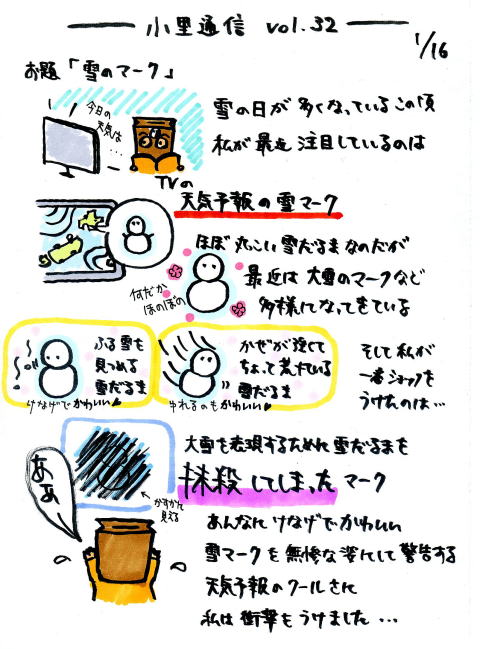 小里通信 vol.32
1/16
お題「雪のマーク」
今日の
天気は
...
雪の日が多くなっているこの頃
私が最近注目しているのは
TVの
天気予報の雪マーク
ほぼ丸こい雪だるまなのだが
最近は大雪のマークなど
多様になってきている
何だか
ほのぼの
ふる雪も
見つめる
雪だるま
けなげでかわいい
かぜが強くて
ちょって荒れている
雪だるま
ゆれるのもかわいい
そして私が
一番ショックを
うけたのは…
大雪を表現するために雪だるまを
抹殺してしまったマーク
かすかに
見える
ああ
あんなにけなげでかわいい
雪マークを無惨な姿にして警告する
天気予報のクールさに
私は衝撃をうけました…